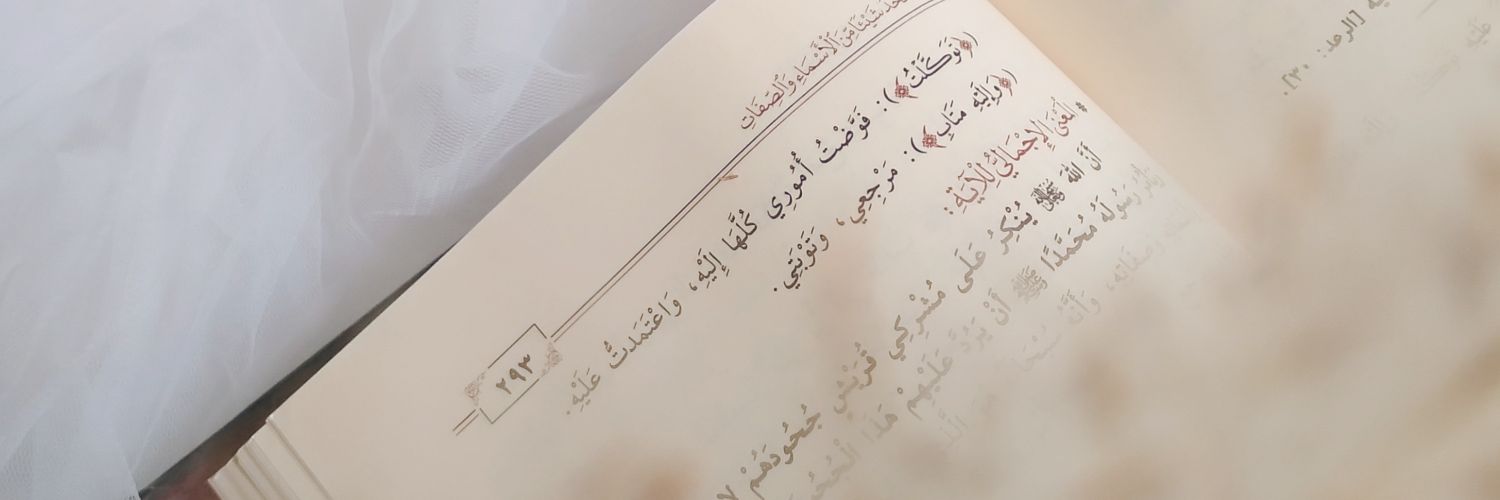 شَيْئًا مِنَ الْأَسْمَاءِ وَالصِّفَاتِ
٢٩٣
(﴿تَوَكَّلْتُ﴾): فَوَّضْتُ أُمُورِي كُلَّهَا إِلَيْهِ، وَاعْتَمَدتُّ عَلَيْهِ.
(﴿وَإِلَيْهِ مَتَابِ﴾): مَرْجِعِي، وَتَوْبَتِي.
* الْمَعْنَى الْإِجْمَالِيُّ لِلْآيَةِ:
أَنَّ اللهَ ﷻ يُنْكِرُ عَلَى مُشْرِكِي قُرَيْشٍ جُحُودَهُمْ
رَسُولَهُ مُحَمَّدًا ﷺ أَنْ يَرُدَّ عَلَيْهِمْ هَذَا الْجُحُو
وَصِفَاتِهِ، وَأَنَّهُ سُبْحَا
[الرعد: ٣٠].